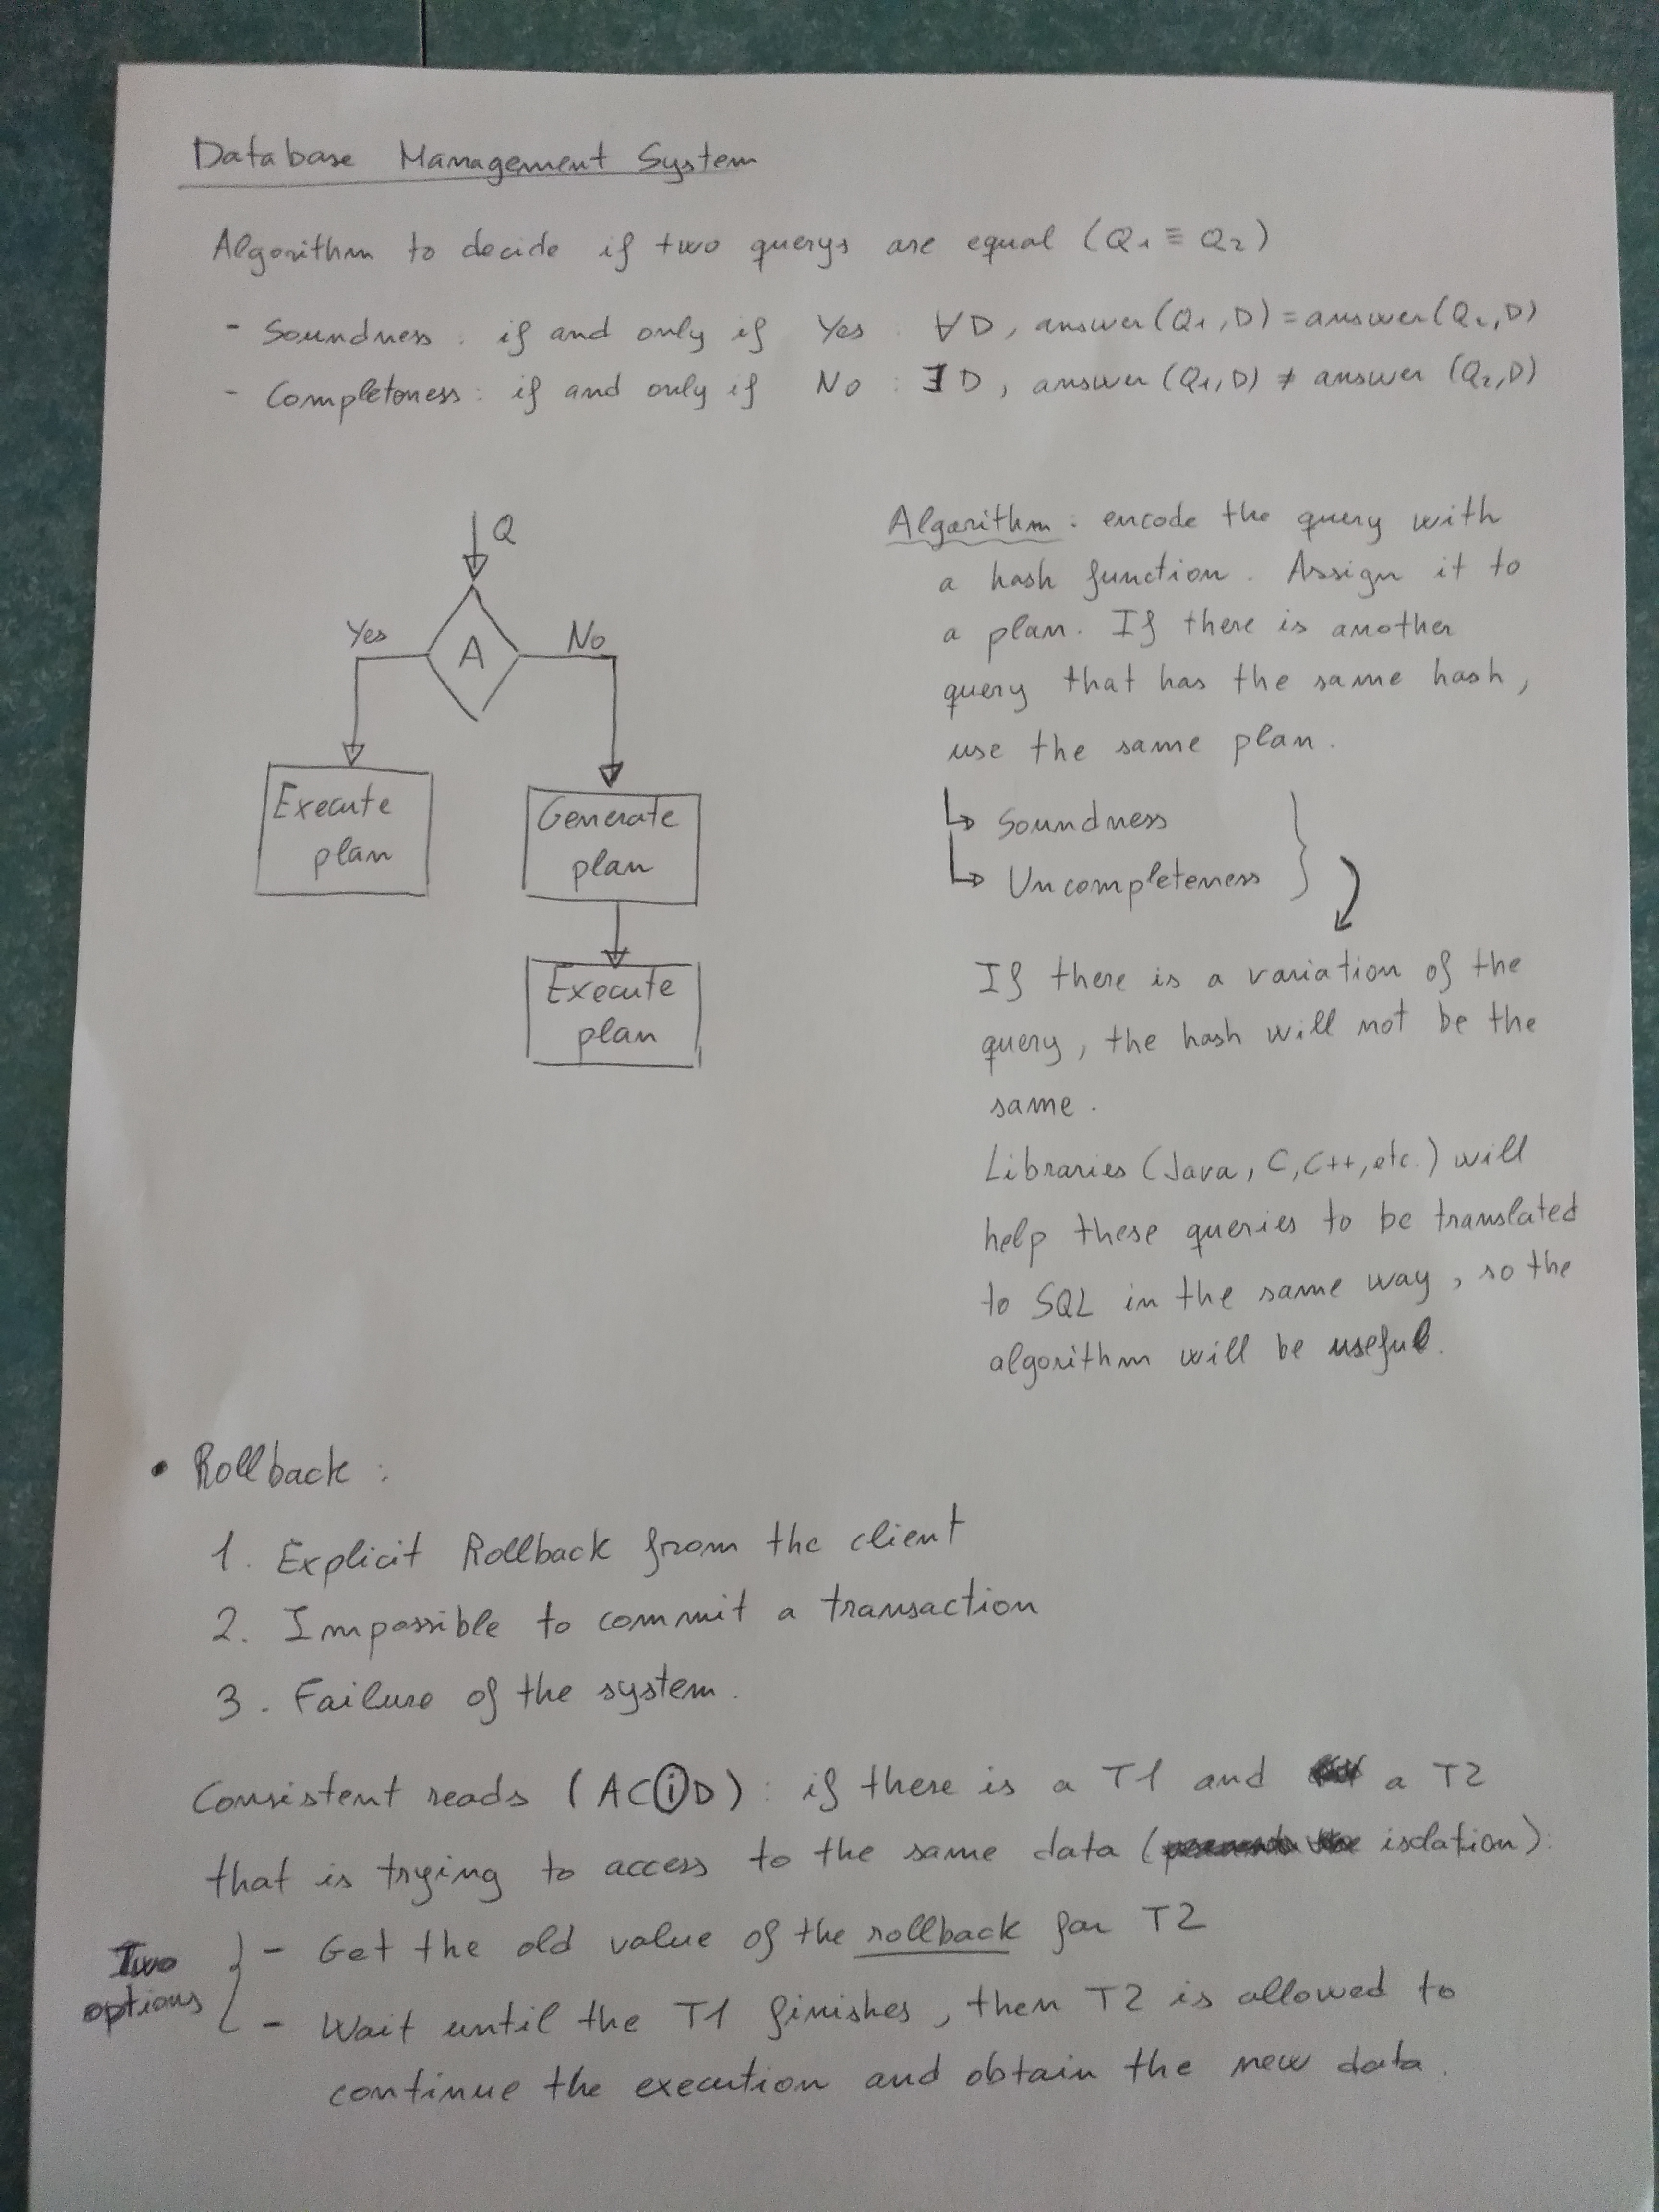 Database Management System
Algorithm to decide if two querys are equal (Q1 ≡ Q2)
- Soundness : if and only if Yes : ∀D, answer(Q1,D) = answer(Q2,D)
- Completeness : if and only if No : ∃D, answer(Q1,D) ≠ answer (Q2,D)
Q
Yes
A
No
Execute
plan
Generate
plan
Execute
plan
Algorithm : encode the query with
a hash function. Assign it to
a plan. If there is another
query that has the same hash,
use the same plan.
↳ Soundness
↳ Uncompleteness
If there is a variation of the
query, the hash will not be the
same.
Libraries (Java, C, C++, etc.) will
help these queries to be translated
to SQL in the same way, so the
algorithm will be useful.
• Rollback :
1. Explicit Rollback from the client
2. Impossible to commit a transaction
3. Failure of the system.
Consistent reads (ACiD) : if there is a T1 and a T2
that is trying to access to the same data (isolation):
Two
options
- Get the old value of the rollback for T2
- Wait until the T1 finishes, then T2 is allowed to
continue the execution and obtain the new data.